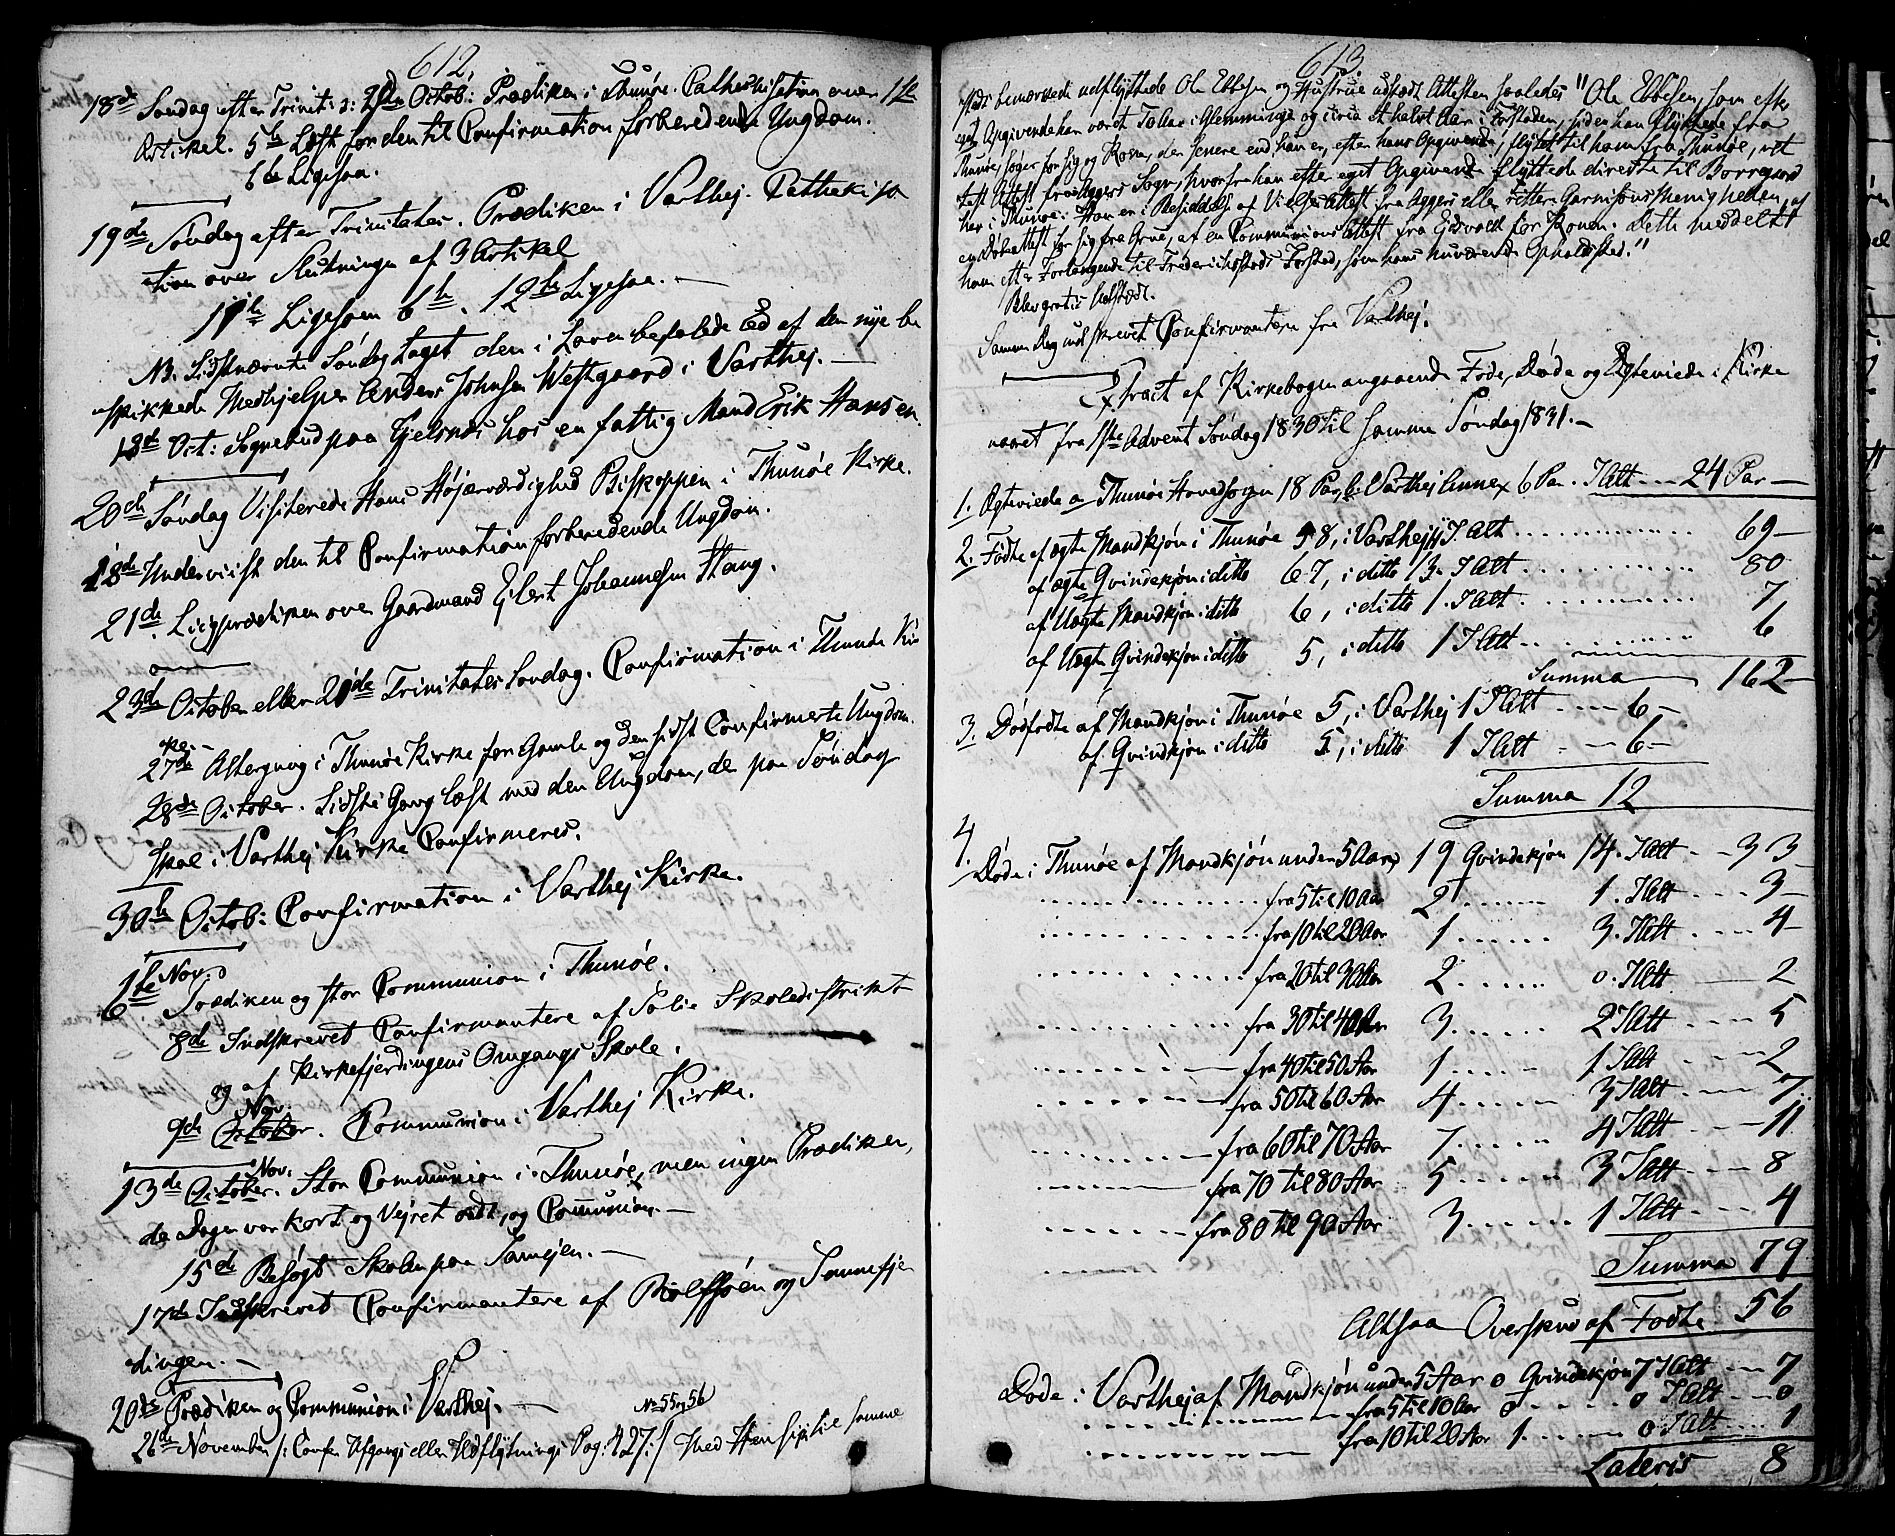 612.
18de Søndag efter Trinit: ɔ: 2den Octob: Prædiken i Thunøe. Cathechisation over 1ste
Artikel. 5te Læst for den til Confirmation forberedende Ungdom.
6te Ligesaa.
19de Søndag efter Trinitates. Prædiken i Varthej. Cathekisa
tion over Slutningen af 3 Artikel
11te Ligesom 6te. 12te Ligesaa. —
NB. Sidstnævnte Søndag taget den i Loven befalede Ed af den nye be
skikkede Medhjelper Anders Johnsen Westgaard i Varthej. —
13de Oct: Sognebud paa Tjelsnes hos en fattig Mand Erik Hansen.
20de Søndag Visiterede Hans Højærværdighed Biskoppen i Thunøe Kirke.
18de Underviist den til Confirmation forberedende Ungdom.
21de. Liigprædiken over Gaardmand Ejlert Johannesen Stang.
23de October eller 21de Trinitates Søndag. Confirmation i Thunøe Kir
ke. —
27de Altergang i Thunøe Kirke for Gamle og den sidst Confirmerte Ungdom.
28de October. Sidste Gang læst med den Ungdom, der paa Søndag
skal i Varthej Kirke Confirmeres.
30te Octob: Confirmation i Varthej Kirke.
6te Nov: Prædiken og stor Communion i Thunøe.
8de Indskrevet Confirmantere af Solie Skoledistrikt
og af Kirkefjerdingens Omgangs Skole.
Nov.
9de October. Communion i Varthej Kirke.
Nov.
13de October. Stor Communion i Thunøe, men ingen Prædiken,
da Dagen var kort og Vejret ondt, og Communion. —
15de Besøgt Skolen paa —
17de Indskrevet Confirmantere af Rolfsøen og Sannefjer
dingen. —
20de Prædiken og Communion i Varthej. —
No 55 og 56
26de November /: Confer Afgangs eller Udflytnings Pag: 427:/ Med Hensigt til samme
613.
steds bemærkede udflyttede Ole Ebbesen og Hustrue udstædt Attesten saaledes "Ole Ebbesen, som efter
eget Opgivende har været Tollær i Glemminge og circa et halvt Aar i Forstaden, siden han flyttede fra
Thunøe, søger for sig og Konen, der senere end han er, efter hans Opgivende, flyttet til ham fra Thunøe, ret
test Attest fra Aggers Sogn, hvorfra han efter eget Opgivende flyttede directe til Borregaard
her i Thunøe. Han er i Besiddelse af Vielse attest fra Aggers eller rettere Garnisonsmenigheden, af
en Dobeattest for sig fra Grue, af en Communions Attest fra Eidsvold for Konen. Dette meddeelt
ham efter Forlangende til Frederichsstads Forstad, som hans nuværende Opholdsted."
Blev gratis udstædt.
Samme Dag indskrevet Confirmantere fra Varthej.
Extract af Kirkebogen angaaende Føde, Døde og Egteviede i Kirke
aaret fra 1ste Advent Søndag 1830 til samme Søndag 1831. —
1. Egteviede a Thunøe Hovedsogn 18 Par, b Varthej Annex 6 Par. I Alt --- 24 Par —
2. Fødte af ægte Mandkjøn i Thunøe 58, i Varthej 11 I Alt ............ 69 —
af ægte Qvindekjøn i ditto 67, i ditto 13. I Alt ............ 80
af Uægte Mandkjøn i ditto 6, i ditto 1. I Alt ............ 7
af Uægte Qvindekjøn i ditto 5, i ditto 1 I Alt .. ............ 6
Summa — 162 —
3. Dødfødte af Mandkjøn i Thunøe 5, i Varthej 1 I Alt ---- 6 —
af Qvindkjøn i ditto 5, i ditto 1 I Alt - -- 6 —
Summa 12
4.
Døde i Thunøe af Mandkjøn under 5 Aar 19 Qvindekjøn 14. I Alt - - 33
............ fra 5 til 10 Aar 2 ...... 1. I Alt ---- 3 —
............ fra 10 til 20 Aar 1 ...... 3. I Alt ---- 4 —
............ fra 20 til 30 Aar 2 ...... 0. I Alt — 2
............ fra 30 til 40 Aar 3 ...... 2 I Alt ---- 5
............ fra 40 til 50 Aar 1 ...... 1 I Alt ---- 2
............ fra 50 til 60 Aar 4 ...... 3 I Alt ---- 7
............ fra 60 til 70 Aar 7 ...... 4 I Alt ---- 11
............ fra 70 til 80 Aar 5 ...... 3 I Alt ---- 8
............ fra 80 til 90 Aar 3 ...... 1 I Alt ---- 4
Summa 79
Altsaa Overskud af Fødte. 56
Døde i Varthej af Mandkjøn under 5 Aar 0 Qvindekjøn 7 I Alt --- 7
............ fra 5 til 10 Aar 0 ...... 0 I Alt --- 0
............ fra 10 til 20 Aar 1 ...... 0 I Alt ... 1
Lateris 8